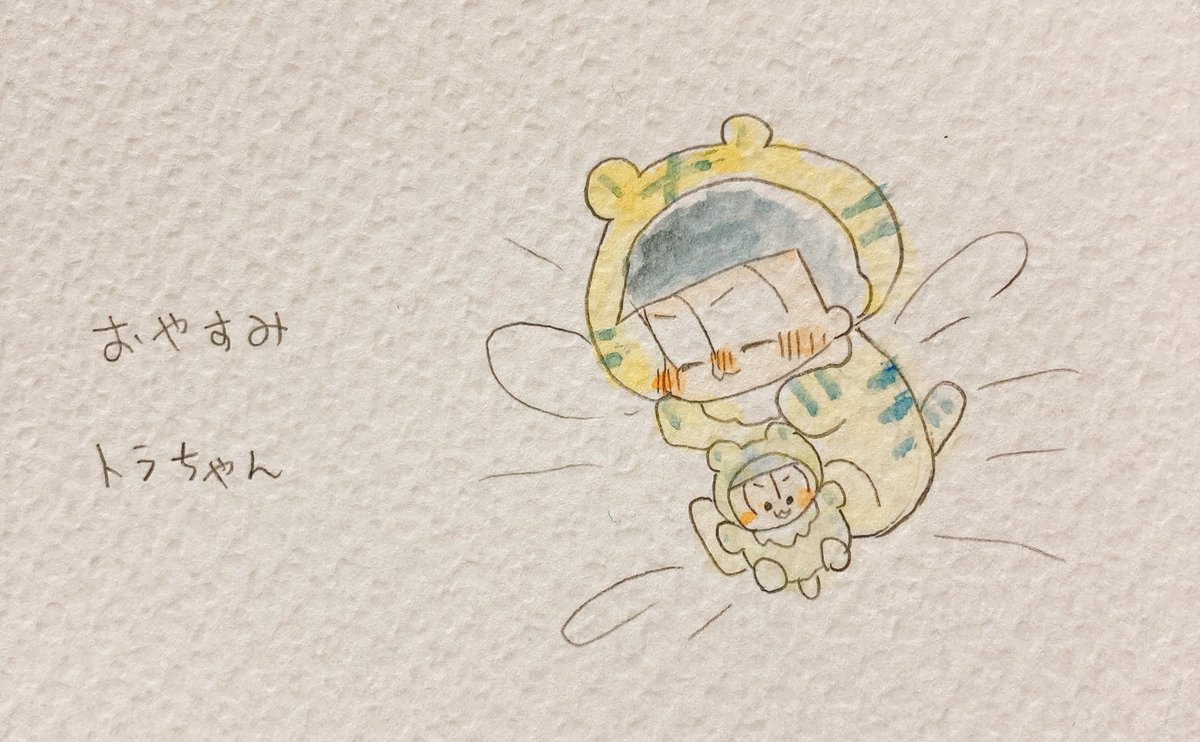 おやすみ
トラちゃん